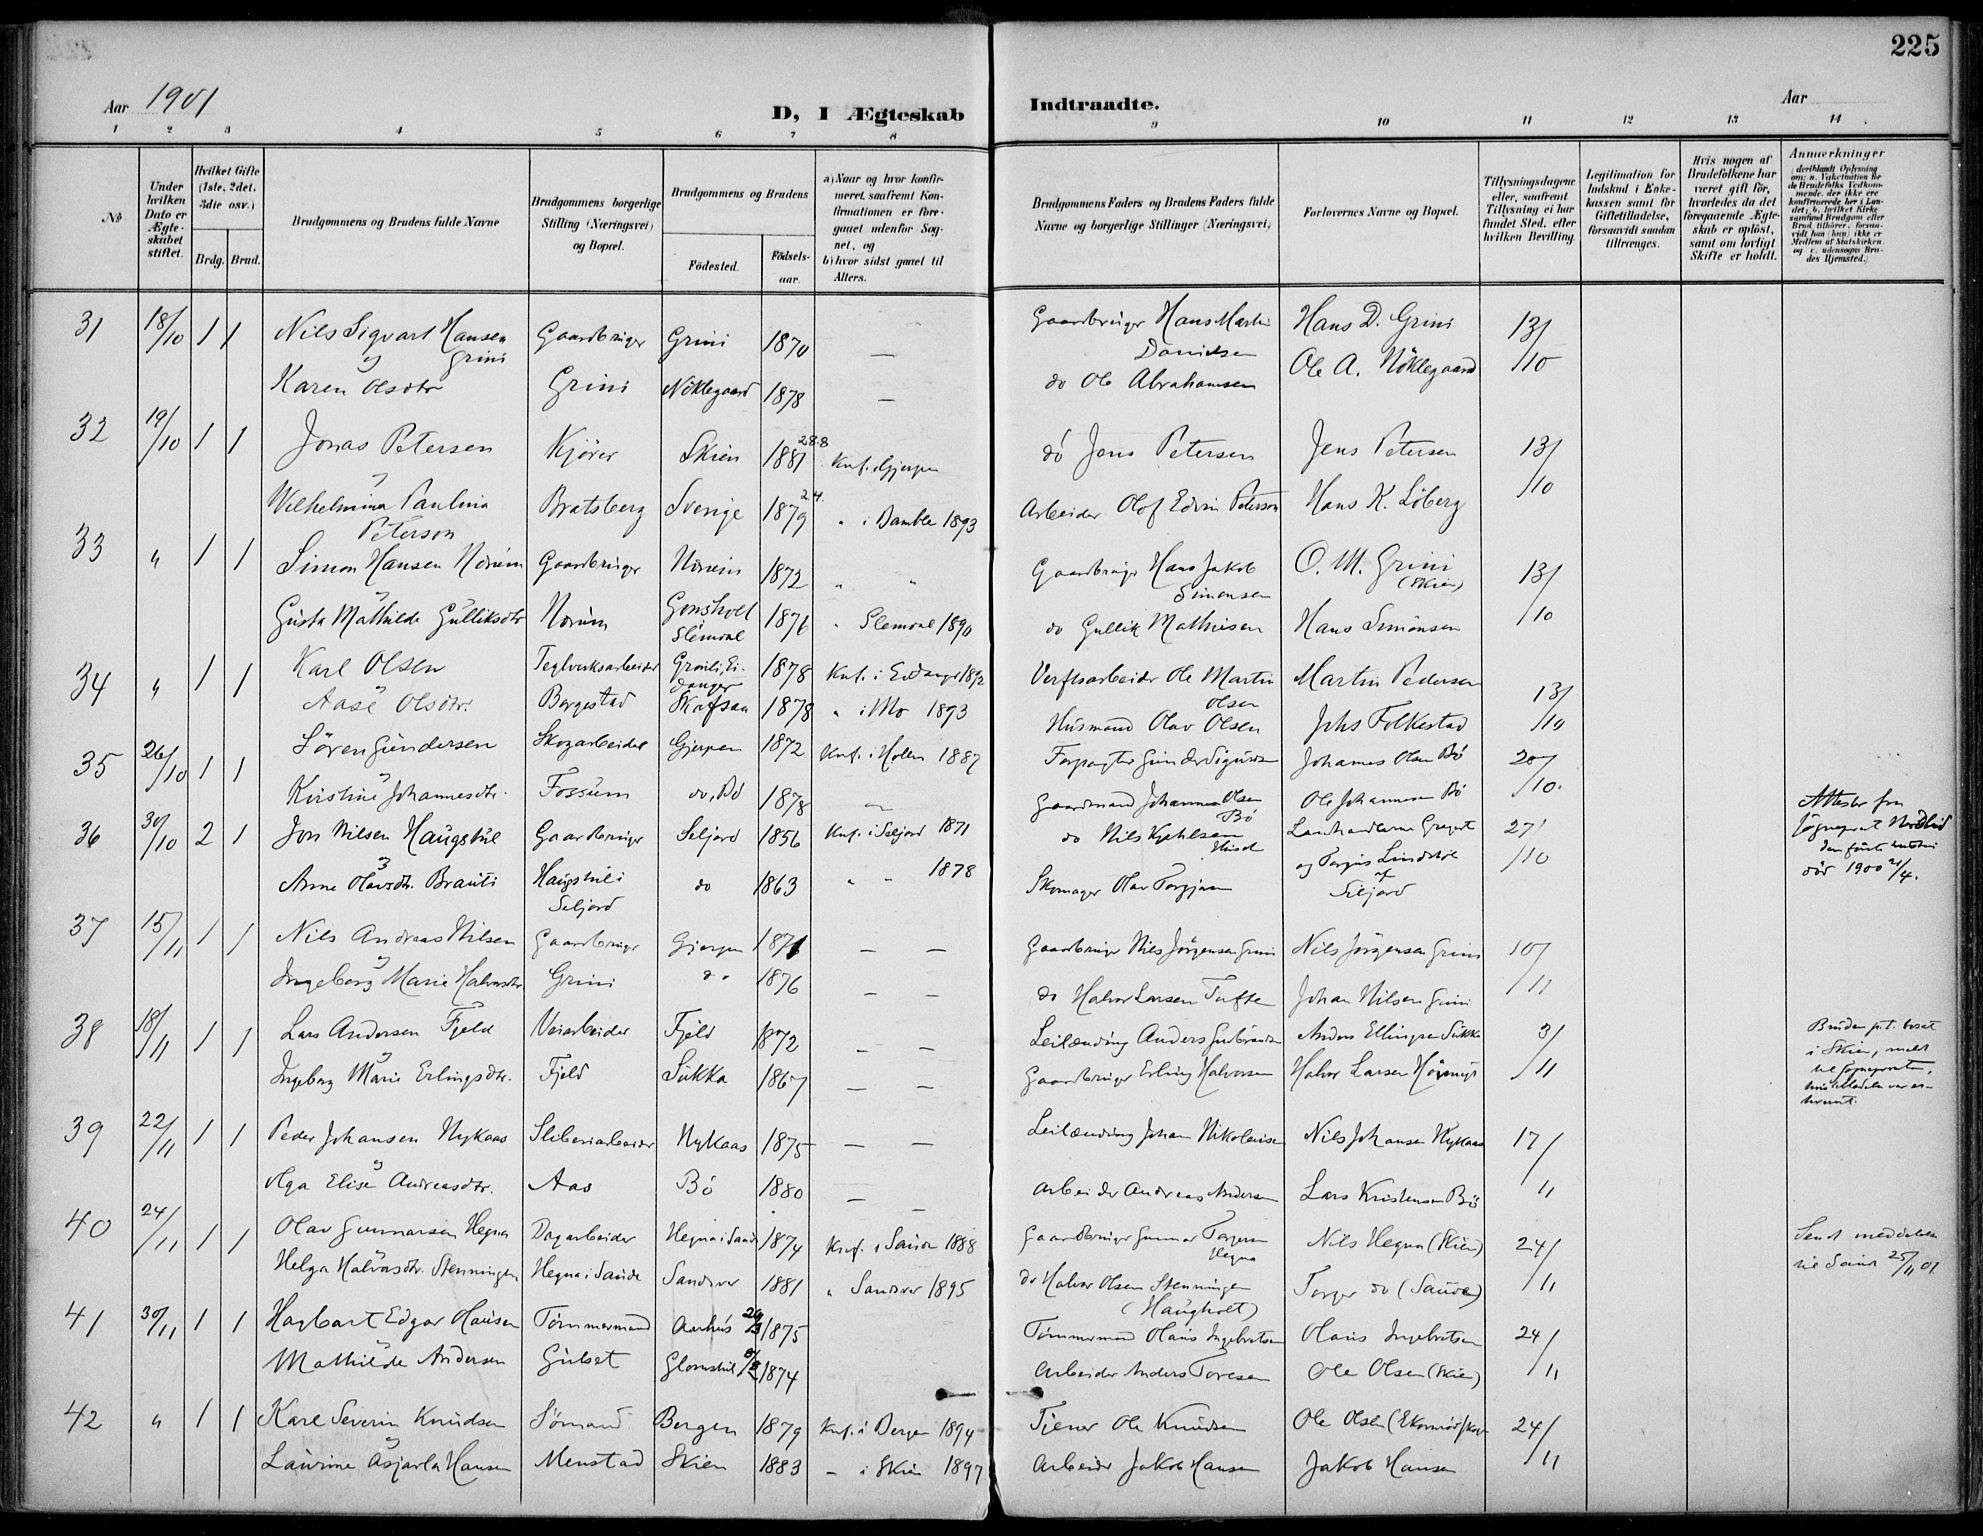 225
Aar 1901
D, I Ægteskab Indtraadte.
Aar
1 2 3 4 5 6 7 8 9 10 11 12 13 14
No
Under hvilken Dato er Ægteskabet stiftet.
Hvilket Gifte (1ste, 2det, 3die osv.)
Brdg. Brud.
Brudgommens og Brudens fulde Navne
Brudgommens borgerlige Stilling (Næringsvei) og Bopæl.
Brudgommens og Brudens
Födested.
Födsels-aar.
a) Naar og hvor konfirmeret, saafremt Konfirmationen er foregaaet udenfor Sognet, og
b) hvor sidst gaaet til Alters.
Brudgommens Faders og Brudens Faders fulde Navne og borgerlige Stillinger (Næringsvei)
Forlovernes Navne og Bopæl.
Tillysningsdagene eller, saafremt Tillysning ei har fundet Sted, efter hvilken Bevilling.
Legitimation for Indskud i Enkekassen samt for Giftetilladelse, forsaavidt saadan tiltrænges.
Hvis nogen af Brudefolkene har været gift för, hvorledes da det foregaaende Ægteskab er oplöst, samt om lovligt Skifte er holdt.
Anmærkninger (deriblandt Oplysning om: a. Vakcination for de Brudefolks Vedkommende, der ikke ere konfirmerede her i Landet; b. hvilket Kirkesamfund Brudgom eller Brud tilhörer, forsaavidt han (hun) ikke er Medlem af Statskirken og c. udensogns Brudes Hjemsted.)
31 18/10 1 1 Nils Sigvart Hansen Grini Gaardbruger Grini 1870 — Gaardbruger Hans Martin Davidsen Hans D. Grini 13/10
og
Karen Olsdtr Grini Nöklegaard 1878 — do Ole Abrahamsen Ole A. Nöklegaard
32 19/10 1 1 Jonas Petersen Kjörer Skien 1881 28.8 Knf. i Gjerpen do Jens Petersen Jens Petersen 13/10
Vilhelmina Paulina Peterson Bratsberg Sverige 1879 2.4. " i Bamble 1893 Arbeider Olof Edvin Peterson Hans K. Löberg
33 " 1 1 Simon Hansen Norum Gaardbruger Norum 1872 " " Gaardbruger Hans Jakob Simonsen O. M. Grini (Skien) 13/10
Gusta Mathilde Gulliksdtr Norum Gonsholt Slemdal 1876 " Slemdal 1890 do Gullik Mathisen Hans Simonsen
34 " 1 1 Karl Olsen Teglverksarbeider Grönli, Eidanger 1878 Knf. i Eidanger 1892 Verftsarbeider Ole Martin Olsen Martin Pedersen 13/10
Aase Olsdtr. Borgestad Skafsaa 1878 " i Mo 1893 Husmand Olav Olsen Johs Folkestad
35 26/10 1 1 Sören Gundersen Skogarbeider Gjerpen 1872 Knf. i Holen 1887 Forpagter Gunder Sigurdsen Johannes Olsen Bö 20/10
Kirstine Johannesdtr. Fossum do, Bö 1878 — Gaardmand Johannes Olsen Bö Ole Johannesen Bö
36 30/10 2 1 Jon Nilsen Haugstul Gaardbruger Seljord 1856 Knf. i Seljord 1871 do Nils Kjetilsen Landhandlerne Gregert 27/10
og
Anne Olavsdtr. Brauti Haugstul i Seljord do 1863 " " 1878 Skomager Olav Torgjusen og Torgius Lindstöl af Seljord
Attester fra Sogneprest Nordlid den första hustru död 1900 21/4.
37 15/11 1 1 Nils Andreas Nilsen Gaardbruger Gjerpen 1871 — — Gaardbruger Nils Jörgensen Grini Nils Jörgensen Grini 10/11
og
Ingeborg Marie Halvorsdtr Grini do 1876 — — do Halvor Larsen Tufte Johan Nilsen Grini
38 18/11 1 1 Lars Andersen Fjeld Veiarbeider Fjeld 1872 — — Leilænding Anders Gulbrandsen Anders Ellingsen Sukka 3/11
og
Ingeborg Marie Erlingsdtr. Fjeld Sukka 1867 — — Gaardbruger Erling Halvorsen Halvor Larsen
Bruden p.t. bosat i Skien, meldt til sognepresten, hvis tilladelse var erhvervet.
39 22/11 1 1 Peder Johansen Nykaas Sliberiarbeider Nykaas 1875 — — Leilænding Johan Nikolaisen Nils Johansen Nykaas 17/11
og
Olga Elise Andreasdtr. Aas Bö 1880 — — Arbeider Andreas Andersen Lars Kristensen Bö
40 24/11 1 1 Olav Gunnarsen Hegna Dagarbeider Hegna i Saude 1874 Knf. i Saude 1888 Gaardbruger Gunnar Torgersen Hegna Nils Hegna (Skien) 24/11
Helga Halvorsdtr. Stenningen Hegna i Saude Sandsver 1881 " Sandsver 1895 do Halvor Olsen Stenningen (Haugholt) Torger do (Saude)
Sendt meddelelse til Saude 25/11 01.
41 30/11 1 1 Hagbart Edgar Hansen Tömmermand Aarhus 29/3 1875 Tömmermand Olaus Ingebretsen Olaus Ingebretsen 24/11
Mathilde Andersen Gulset 1874 Arbeider Anders Toresen Ole Olsen (Skien)
42 " 1 1 Karl Severin Knudsen Sömand Bergen 1879 Knf. i Bergen 1894 Tjener Ole Knudsen Ole Olsen 24/11
og
Laurine Asjarla Hansen Menstad Skien 1883 — i Skien 1897 Arbeider Jakob Hansen Jakob Hansen